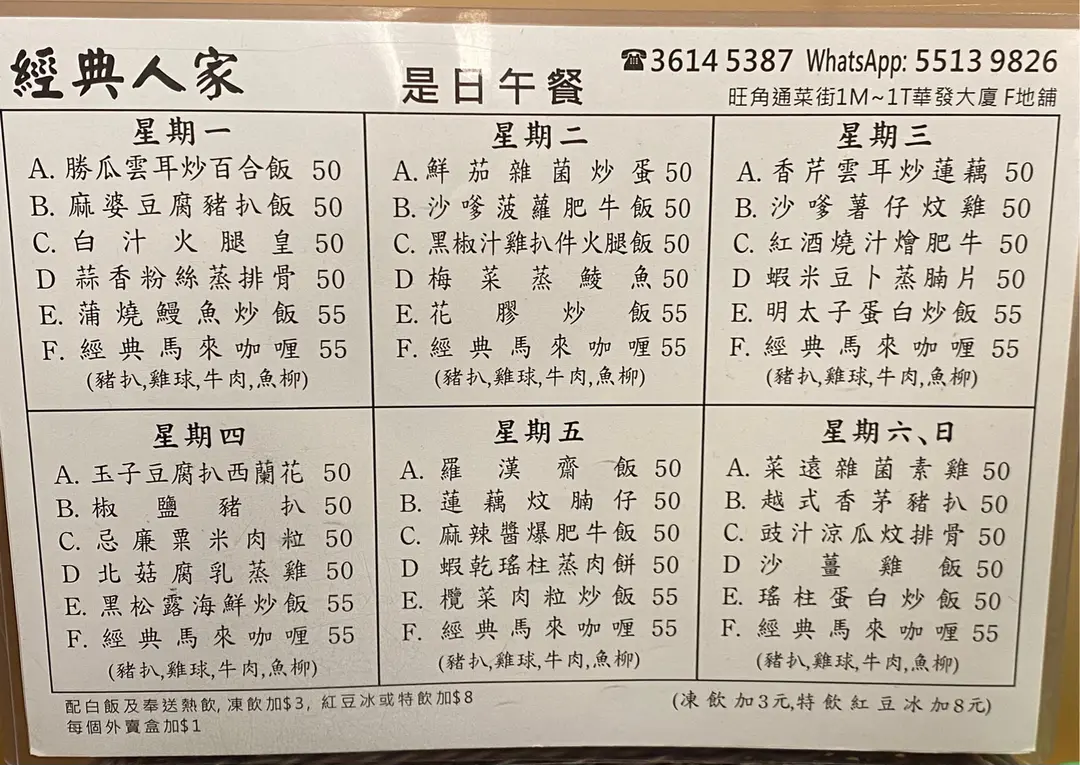 經典人家
是日午餐
☎3614 5387 WhatsApp: 5513 9826
旺角通菜街1M~1T華發大廈 F地舖
星期一
A. 勝瓜雲耳炒百合飯 50
B. 麻婆豆腐豬扒飯 50
C. 白汁火腿皇 50
D 蒜香粉絲蒸排骨 50
E. 蒲燒鰻魚炒飯 55
F. 經典馬來咖喱 55
(豬扒,雞球,牛肉,魚柳)
星期二
A. 鮮茄雜菌炒蛋 50
B. 沙嗲菠蘿肥牛飯 50
C. 黑椒汁雞扒件火腿飯 50
D 梅菜蒸鯪魚 50
E. 花膠炒飯 55
F. 經典馬來咖喱 55
(豬扒,雞球,牛肉,魚柳)
星期三
A. 香芹雲耳炒蓮藕 50
B. 沙嗲薯仔炆雞 50
C. 紅酒燒汁燴肥牛 50
D 蝦米豆卜蒸腩片 50
E. 明太子蛋白炒飯 55
F. 經典馬來咖喱 55
(豬扒,雞球,牛肉,魚柳)
星期四
A. 玉子豆腐扒西蘭花 50
B. 椒鹽豬扒 50
C. 忌廉粟米肉粒 50
D 北菇腐乳蒸雞 50
E. 黑松露海鮮炒飯 55
F. 經典馬來咖喱 55
(豬扒,雞球,牛肉,魚柳)
星期五
A. 羅漢齋飯 50
B. 蓮藕炆腩仔 50
C. 麻辣醬爆肥牛飯 50
D 蝦乾瑤柱蒸肉餅 50
E. 欖菜肉粒炒飯 55
F. 經典馬來咖喱 55
(豬扒,雞球,牛肉,魚柳)
星期六、日
A. 菜遠雜菌素雞 50
B. 越式香茅豬扒 50
C. 豉汁涼瓜炆排骨 50
D 沙薑雞飯 50
E. 瑤柱蛋白炒飯 50
F. 經典馬來咖喱 55
(豬扒,雞球,牛肉,魚柳)
配白飯及奉送熱飲, 凍飲加$3, 紅豆冰或特飲加$8
每個外賣盒加$1
(凍飲加3元,特飲紅豆冰加8元)